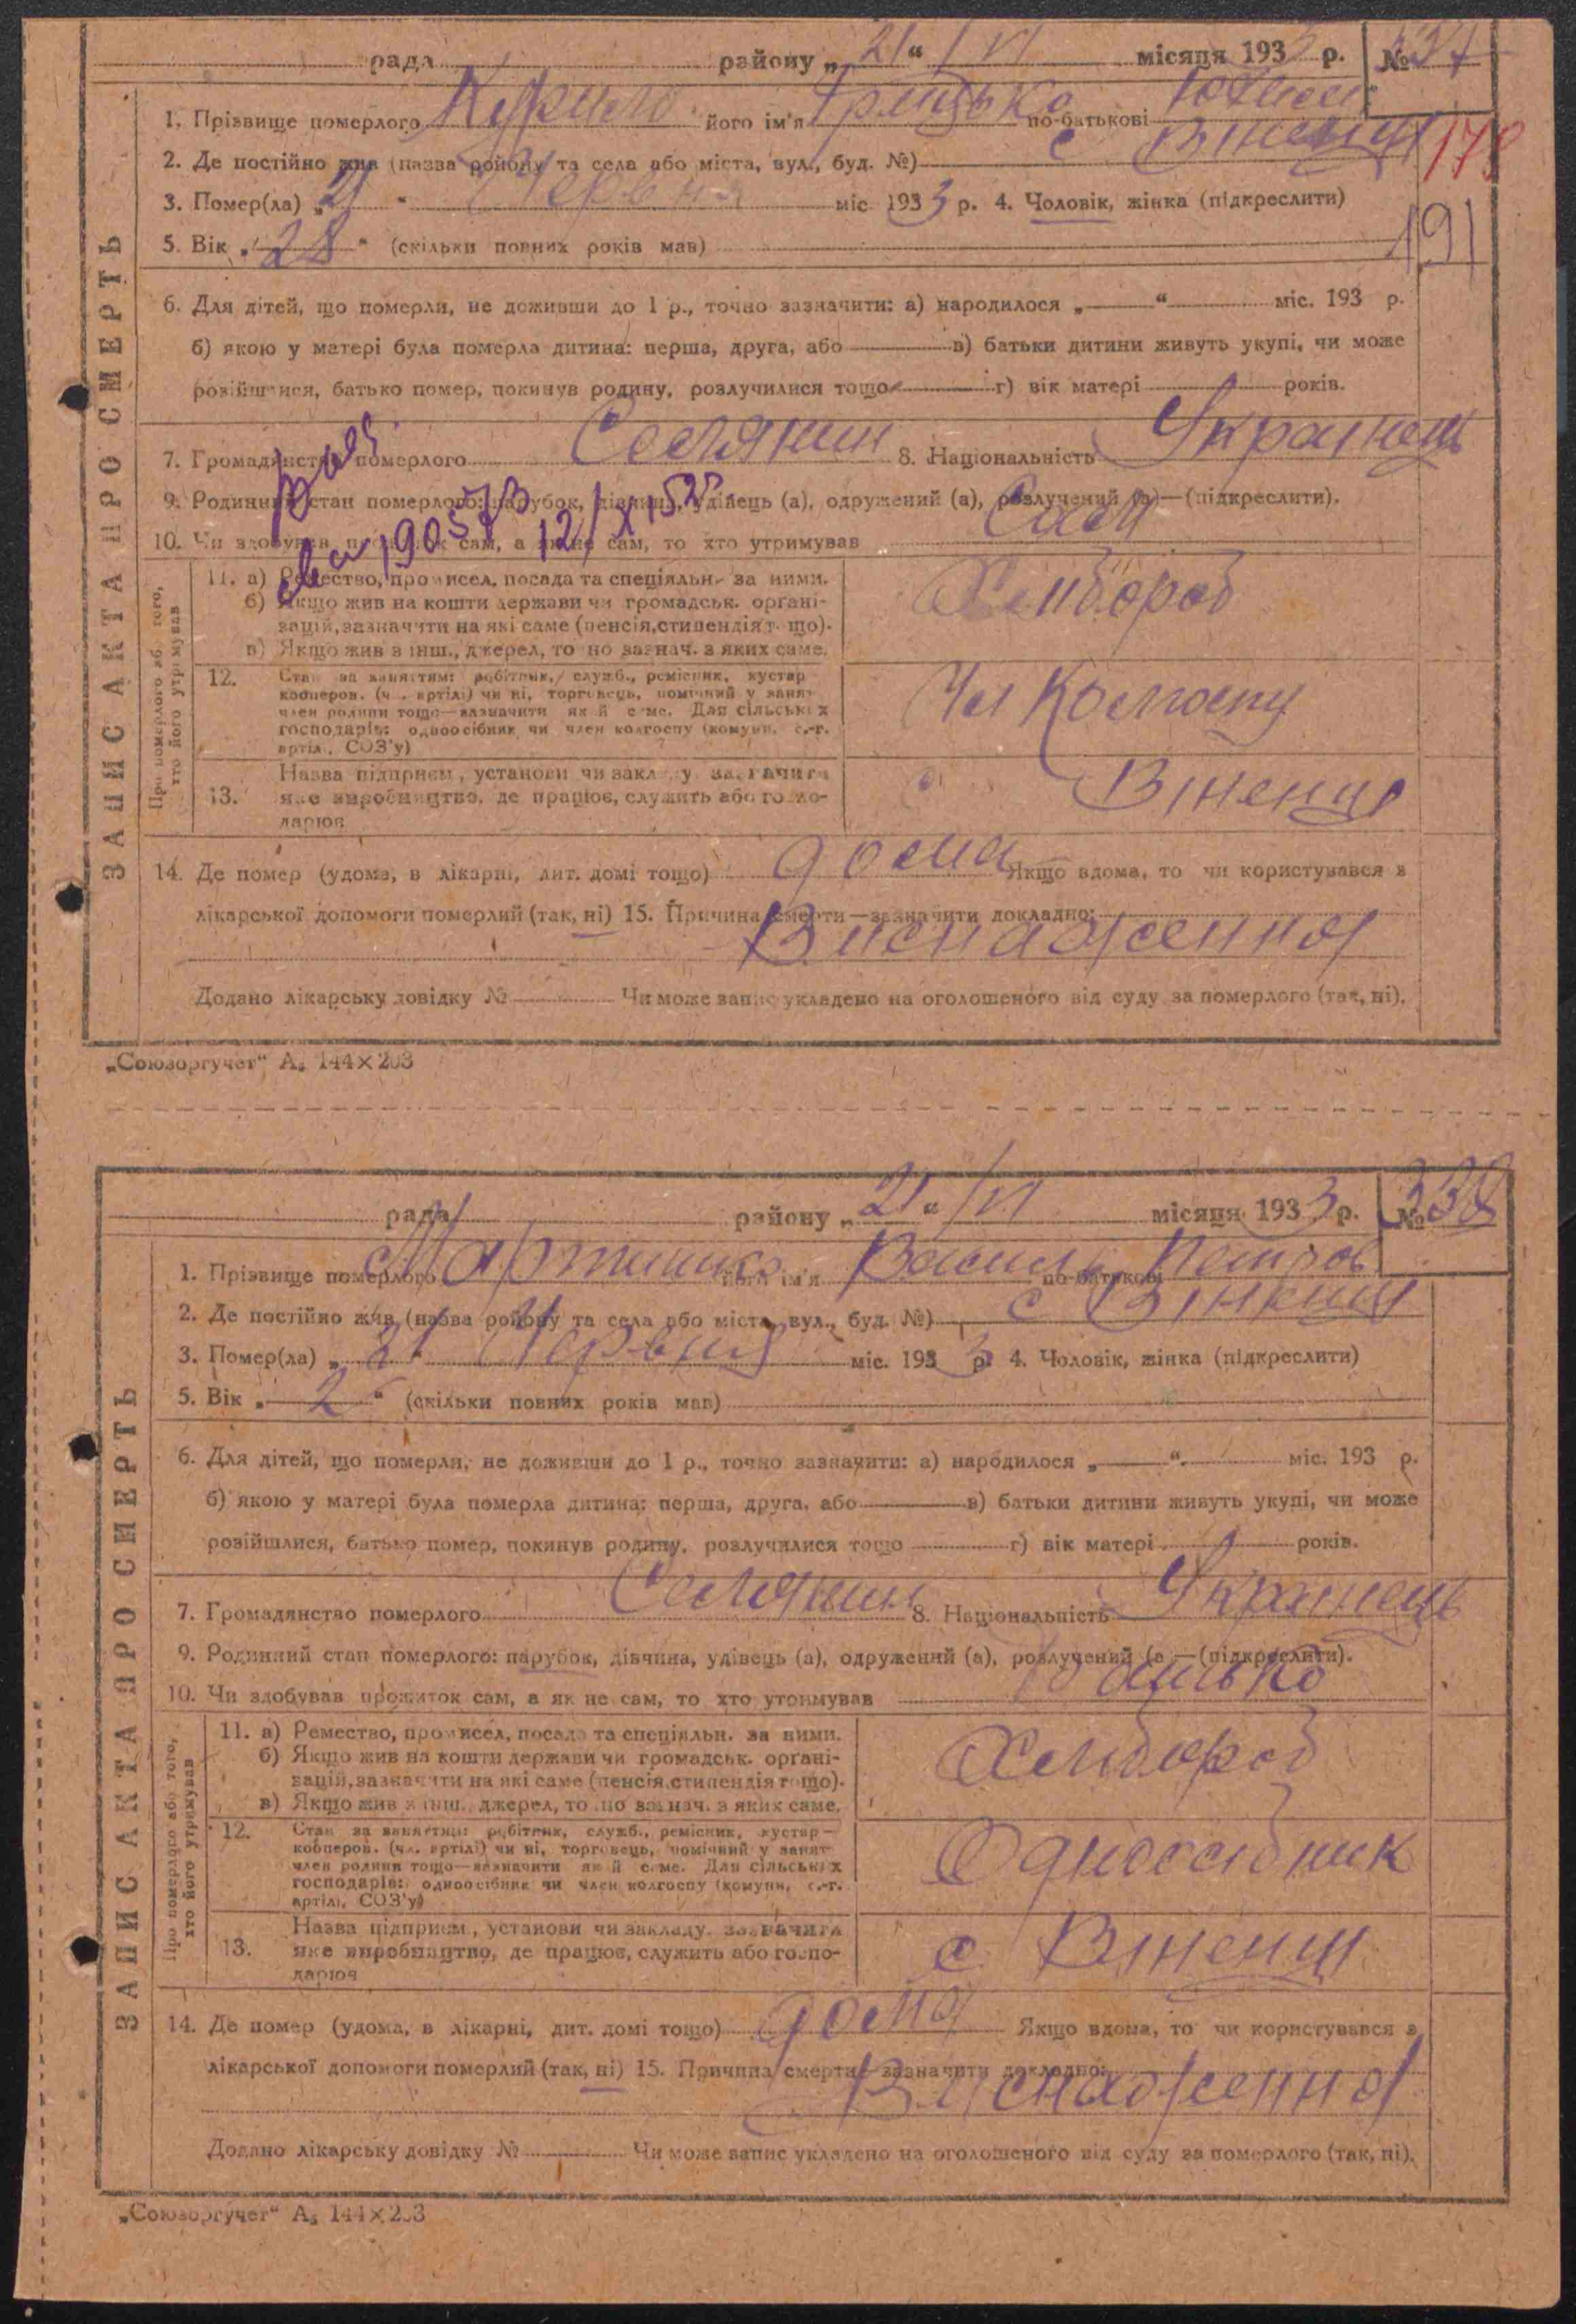 рада району „ 21 “ / VI місяця 1933 р. № 337
1. Прізвище померлого Курило його ім'я Грицько по-батькові
2. Де постійно жив (назва району та села або міста, вул., буд. №) с Віненці
179
3. Помер(ла) „ 21 “ Червня міс 1933 р. 4. Чоловік, жінка (підкреслити)
191
5. Вік „ 28 “ (скільки повних років мав)
6. Для дітей, що померли, не доживши до 1 р., точно зазначити: а) народилося „ “ міс. 193 р.
б) якою у матері була померла дитина: перша, друга, або в) батьки дитини живуть укупі, чи може
розійшлися, батько помер, покинув родину, розлучилися тощо г) вік матері років.
7. Громадянство померлого Селянин 8. Національність Українець
9. Родинний стан померлого: парубок, дівчина, удівець (а), одружений (а), розлучений (а)—(підкреслити).
10. Чи здобував прожиток сам, а як не сам, то хто утримував Сам
190573
12/X 52
ЗАПИС АКТА ПРО СМЕРТЬ
Про померлого або того,
хто його утримував
11. а) Ремество, промисел, посада та спеціяльн. за ними.
б) Якщо жив на кошти держави чи громадськ. органі-
зацій, зазначити на які саме (пенсія, стипендія т. що).
в) Якщо жив з інш., джерел, то но зазнач. з яких саме.
Хлибороб
12. Стан за заняттям: робітник, служб., ремісник, кустар
кооперов. (чл. артілі) чи ні, торговець, помічний у занят
член родини тощо—зазначити який саме. Для сільських
господарів: одноосібник чи член колгоспу (комуни, с.-г.
артілі, СОЗ'у)
Чл Колгоспу
13. Назва підприєм., установи чи закладу. зазначити
яке виробництво, де працює, служить або госпо-
дарює
с Віненці
14. Де помер (удома, в лікарні, дит. домі тощо) дома Якщо вдома, то чи користувався з
лікарської допомоги померлий (так, ні) 15. Причина смерти—зазначити докладно:
Виснаження
Додано лікарську довідку № Чи може запис укладено на оголошеного від суду за померлого (так, ні).
„Союзоргучет“ А₅ 144×203
рада району „ 21 “ / VI місяця 1933 р. № 338
1. Прізвище померлого Мартиненко його ім'я Василь по-батькові Петров
2. Де постійно жив (назва району та села або міста, вул., буд. №) с Вінкнці
3. Помер(ла) „ 21 “ Червня міс. 1933 р. 4. Чоловік, жінка (підкреслити)
5. Вік „ 2 “ (скільки повних років мав)
6. Для дітей, що померли, не доживши до 1 р., точно зазначити: а) народилося „ “ міс. 193 р.
б) якою у матері була померла дитина: перша, друга, або в) батьки дитини живуть укупі, чи може
розійшлися, батько помер, покинув родину, розлучилися тощо г) вік матері років.
7. Громадянство померлого Селянин 8. Національність Українець
9. Родинний стан померлого: парубок, дівчина, удівець (а), одружений (а), розлучений (а —(підкреслити).
10. Чи здобував прожиток сам, а як не сам, то хто утримував батько
ЗАПИС АКТА ПРО СМЕРТЬ
Про померлого або того,
хто його утримував
11. а) Ремество, промисел, посада та спеціяльн. за ними.
б) Якщо жив на кошти держави чи громадськ. органі-
зацій, зазначити на які саме (пенсія, стипендія тощо).
в) Якщо жив з інш., джерел, то но зазнач. з яких саме.
Хлибороб
12. Стан за заняттям: робітник, служб., ремісник, кустар—
кооперов. (чл. артілі) чи ні, торговець, помічний у занят
член родини тощо—зазначити який саме. Для сільських
господарів: одноосібник чи член колгоспу (комуни, с.-г.
артілі, СОЗ'у)
Одноосібник
13. Назва підприєм., установи чи закладу. зазначити
яке виробництво, де працює, служить або госпо-
дарює
с. Віненці
14. Де помер (удома, в лікарні, дит. домі тощо) дома Якщо вдома, то чи користувався з
лікарської допомоги померлий (так, ні) 15. Причина смерти—зазначити докладно:
Виснаження
Додано лікарську довідку № Чи може запис укладено на оголошеного від суду за померлого (так, ні).
„Союзоргучет“ А₅ 144×203